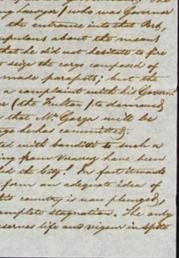 ) who was Govern
the entrance into that Port,
scrupulous about the means
that he did not hesitate to fire
seize the cargo composed of
made parapets; but the
a complaint with his Govern
(the Fulton) to demand
that Mr. Garza will be
he has committed.
with banditti to such a
from Veracruz have been
the City. In fact it wants
form an adequate idea of
this country is now plunged,
complete stagnation. The only
preserves life and vigour in spite